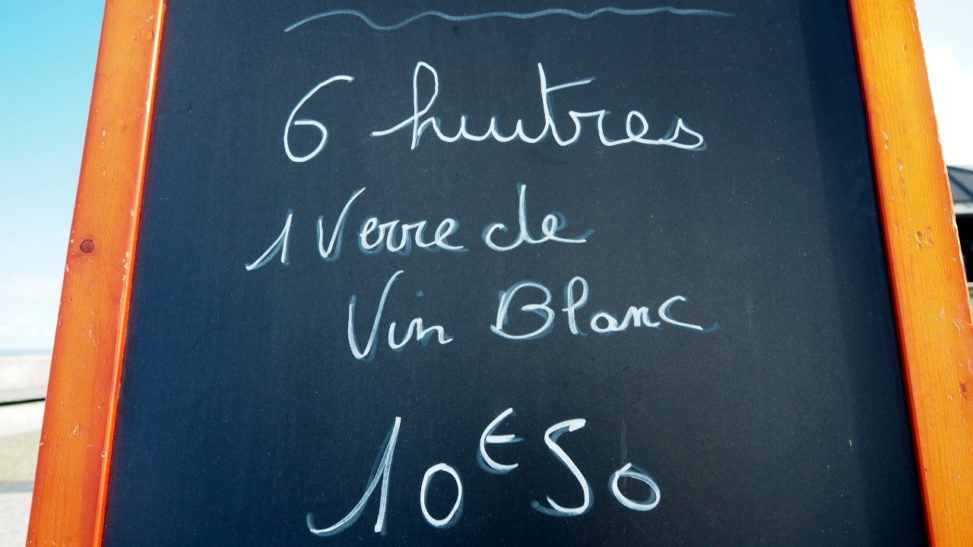 6 huitres
1 Verre de
Vin Blanc
10€50